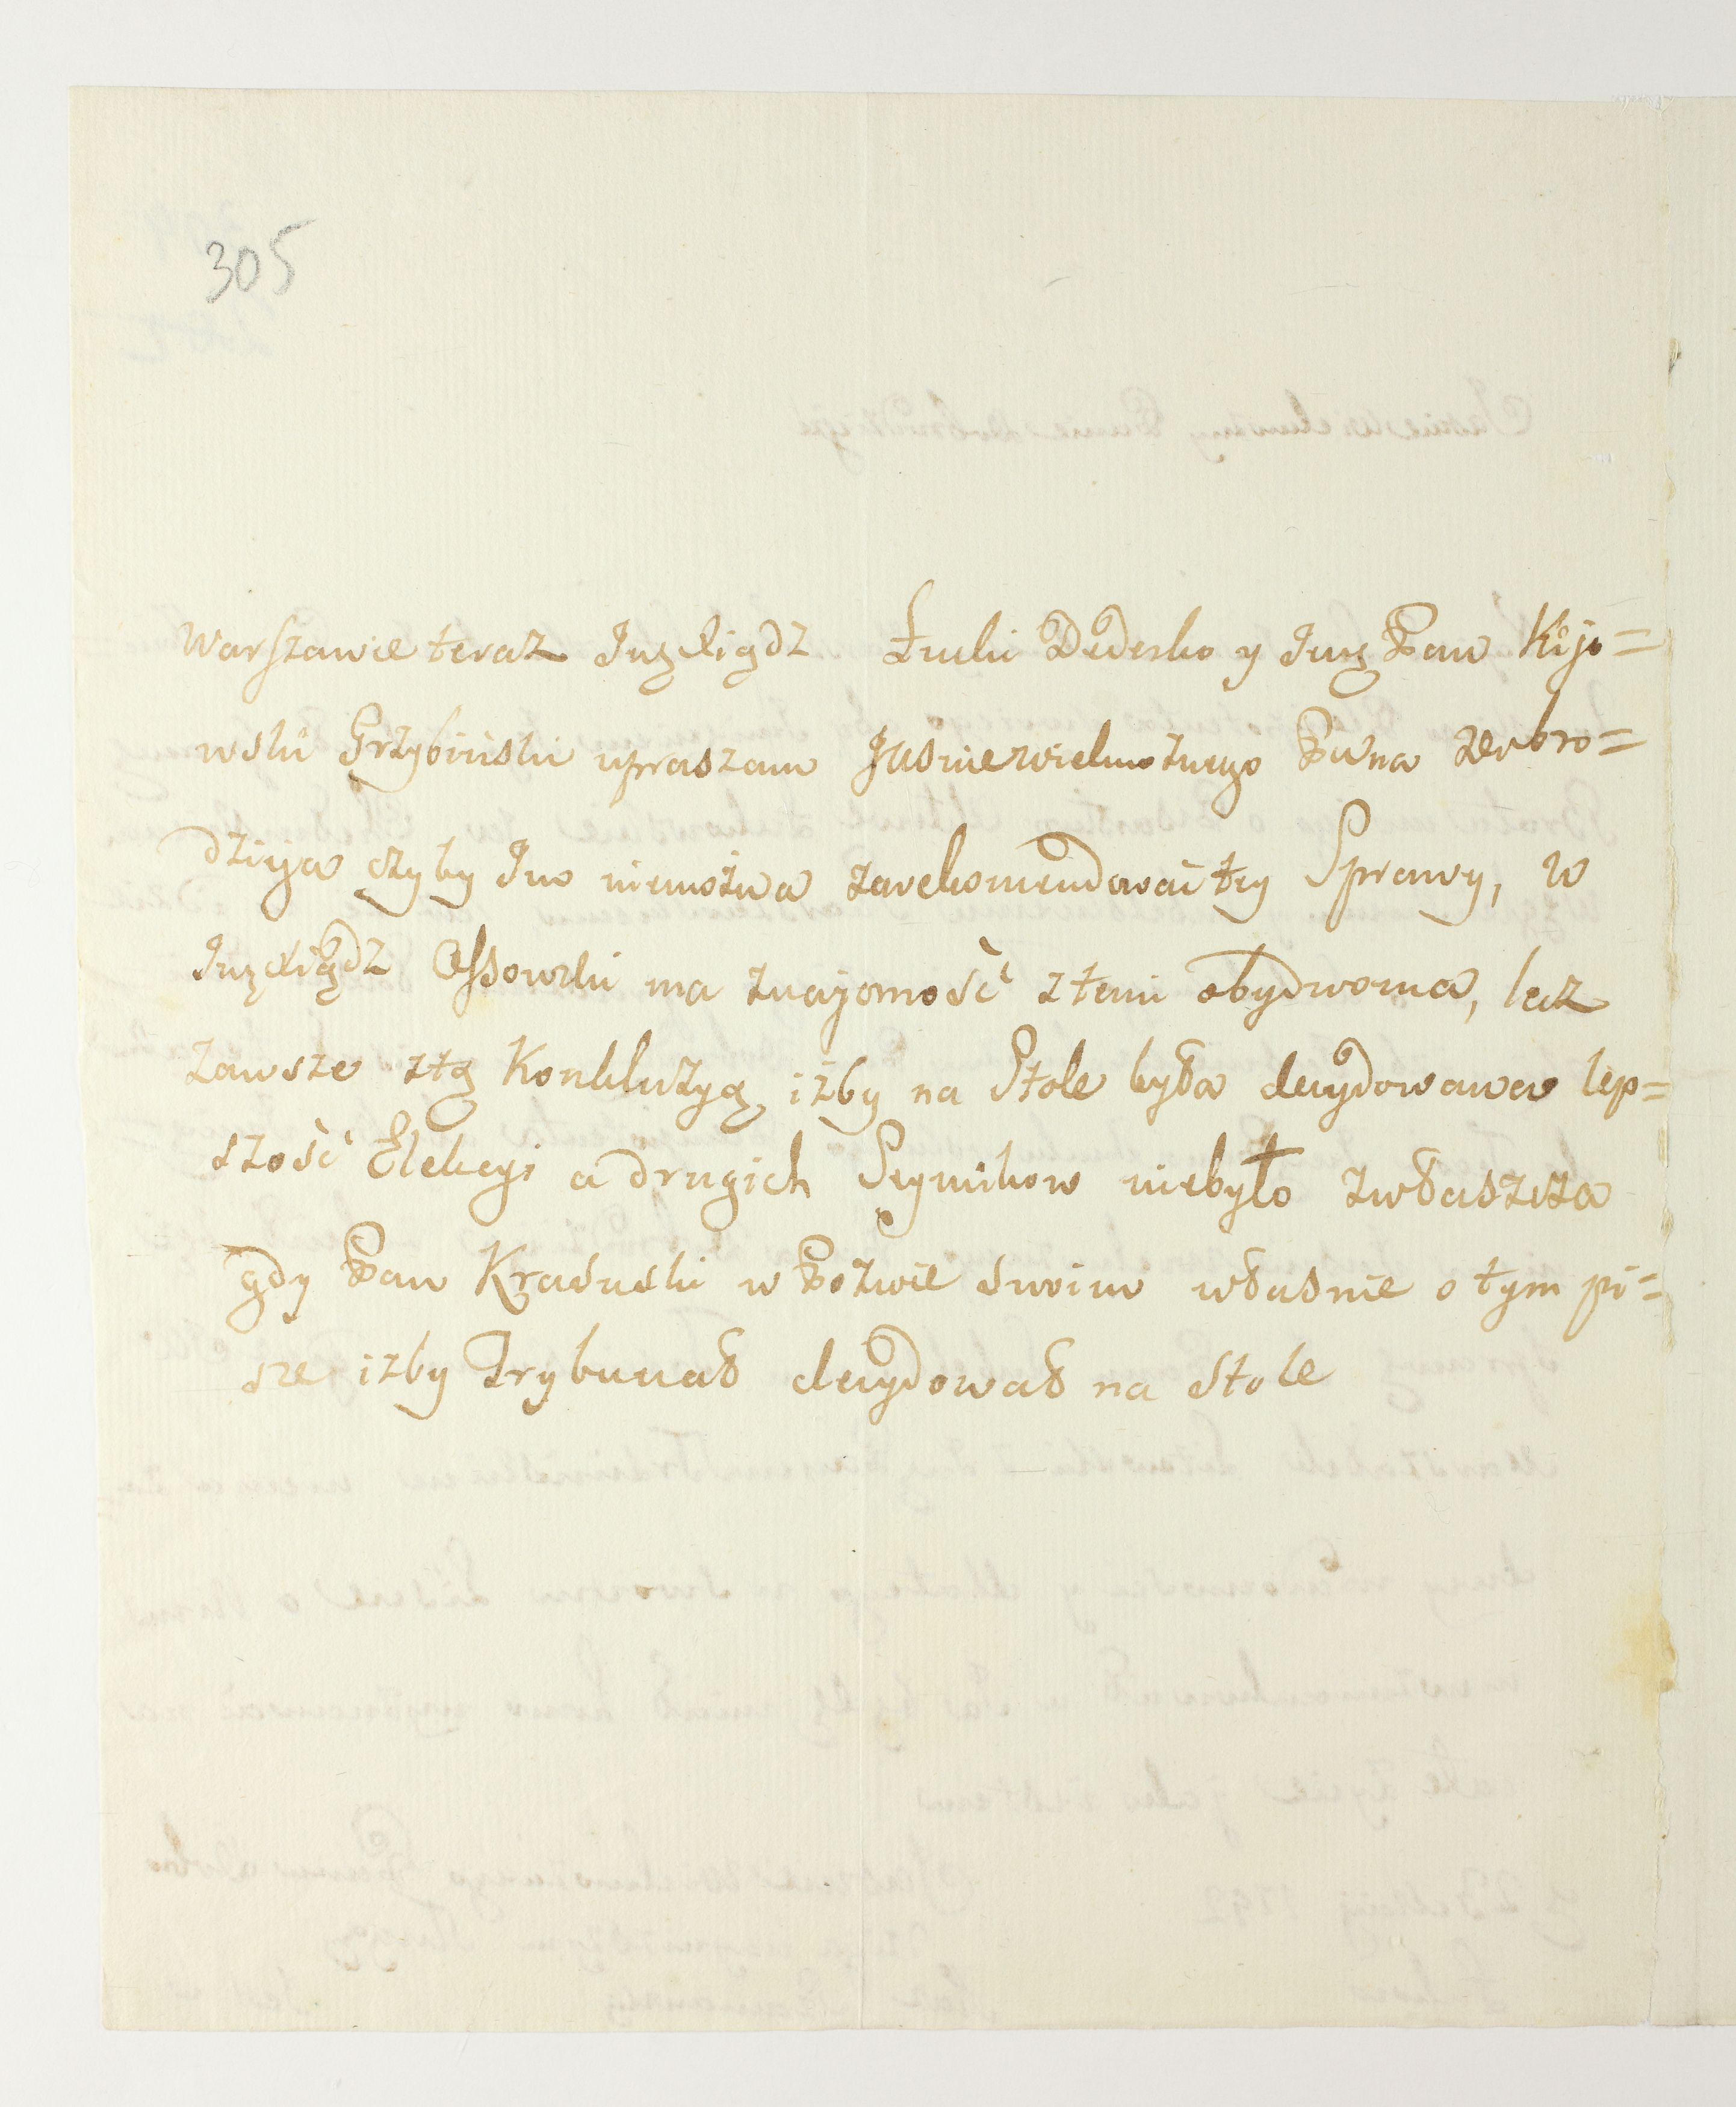 305
Warszawie teraz Jmć Xiądz Łucki Dederko y Jmć Pan Kijo=
wski Grzybiński upraszam Jasniewielmożnego Pana Dobro=
dzieja czyby Imo niemożna zarekomendować tey Sprawy, w
Jmć Xiądz Ossowski ma znajomość z temi obydwoma, lecz
zawsze z tą Konkluzyą, iżby na Stole była decydowana lep=
szość Elekcyi a drugich Seymikow niebyło zwłaszcza
gdy Pan Krasuski w Pozwie swoim własnie o tym pi=
sze izby Trybunał decydował na Stole